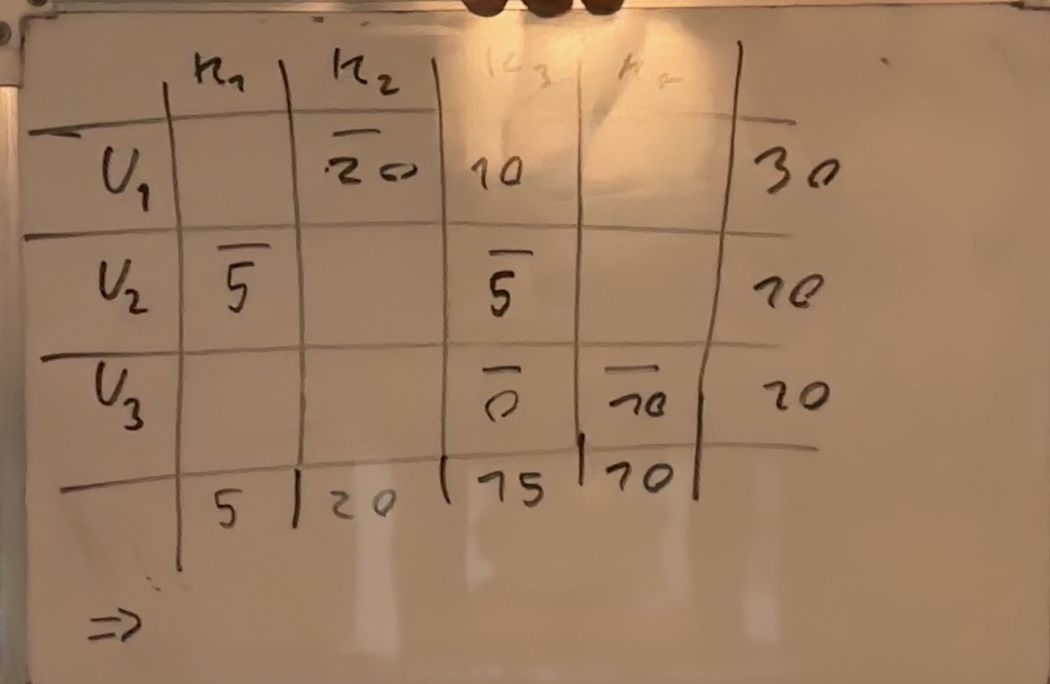 K₁ K₂ K₃
U₁ 20 10 30
U₂ 5 5 10
U₃ 0 10 10
5 20 15 10
=>